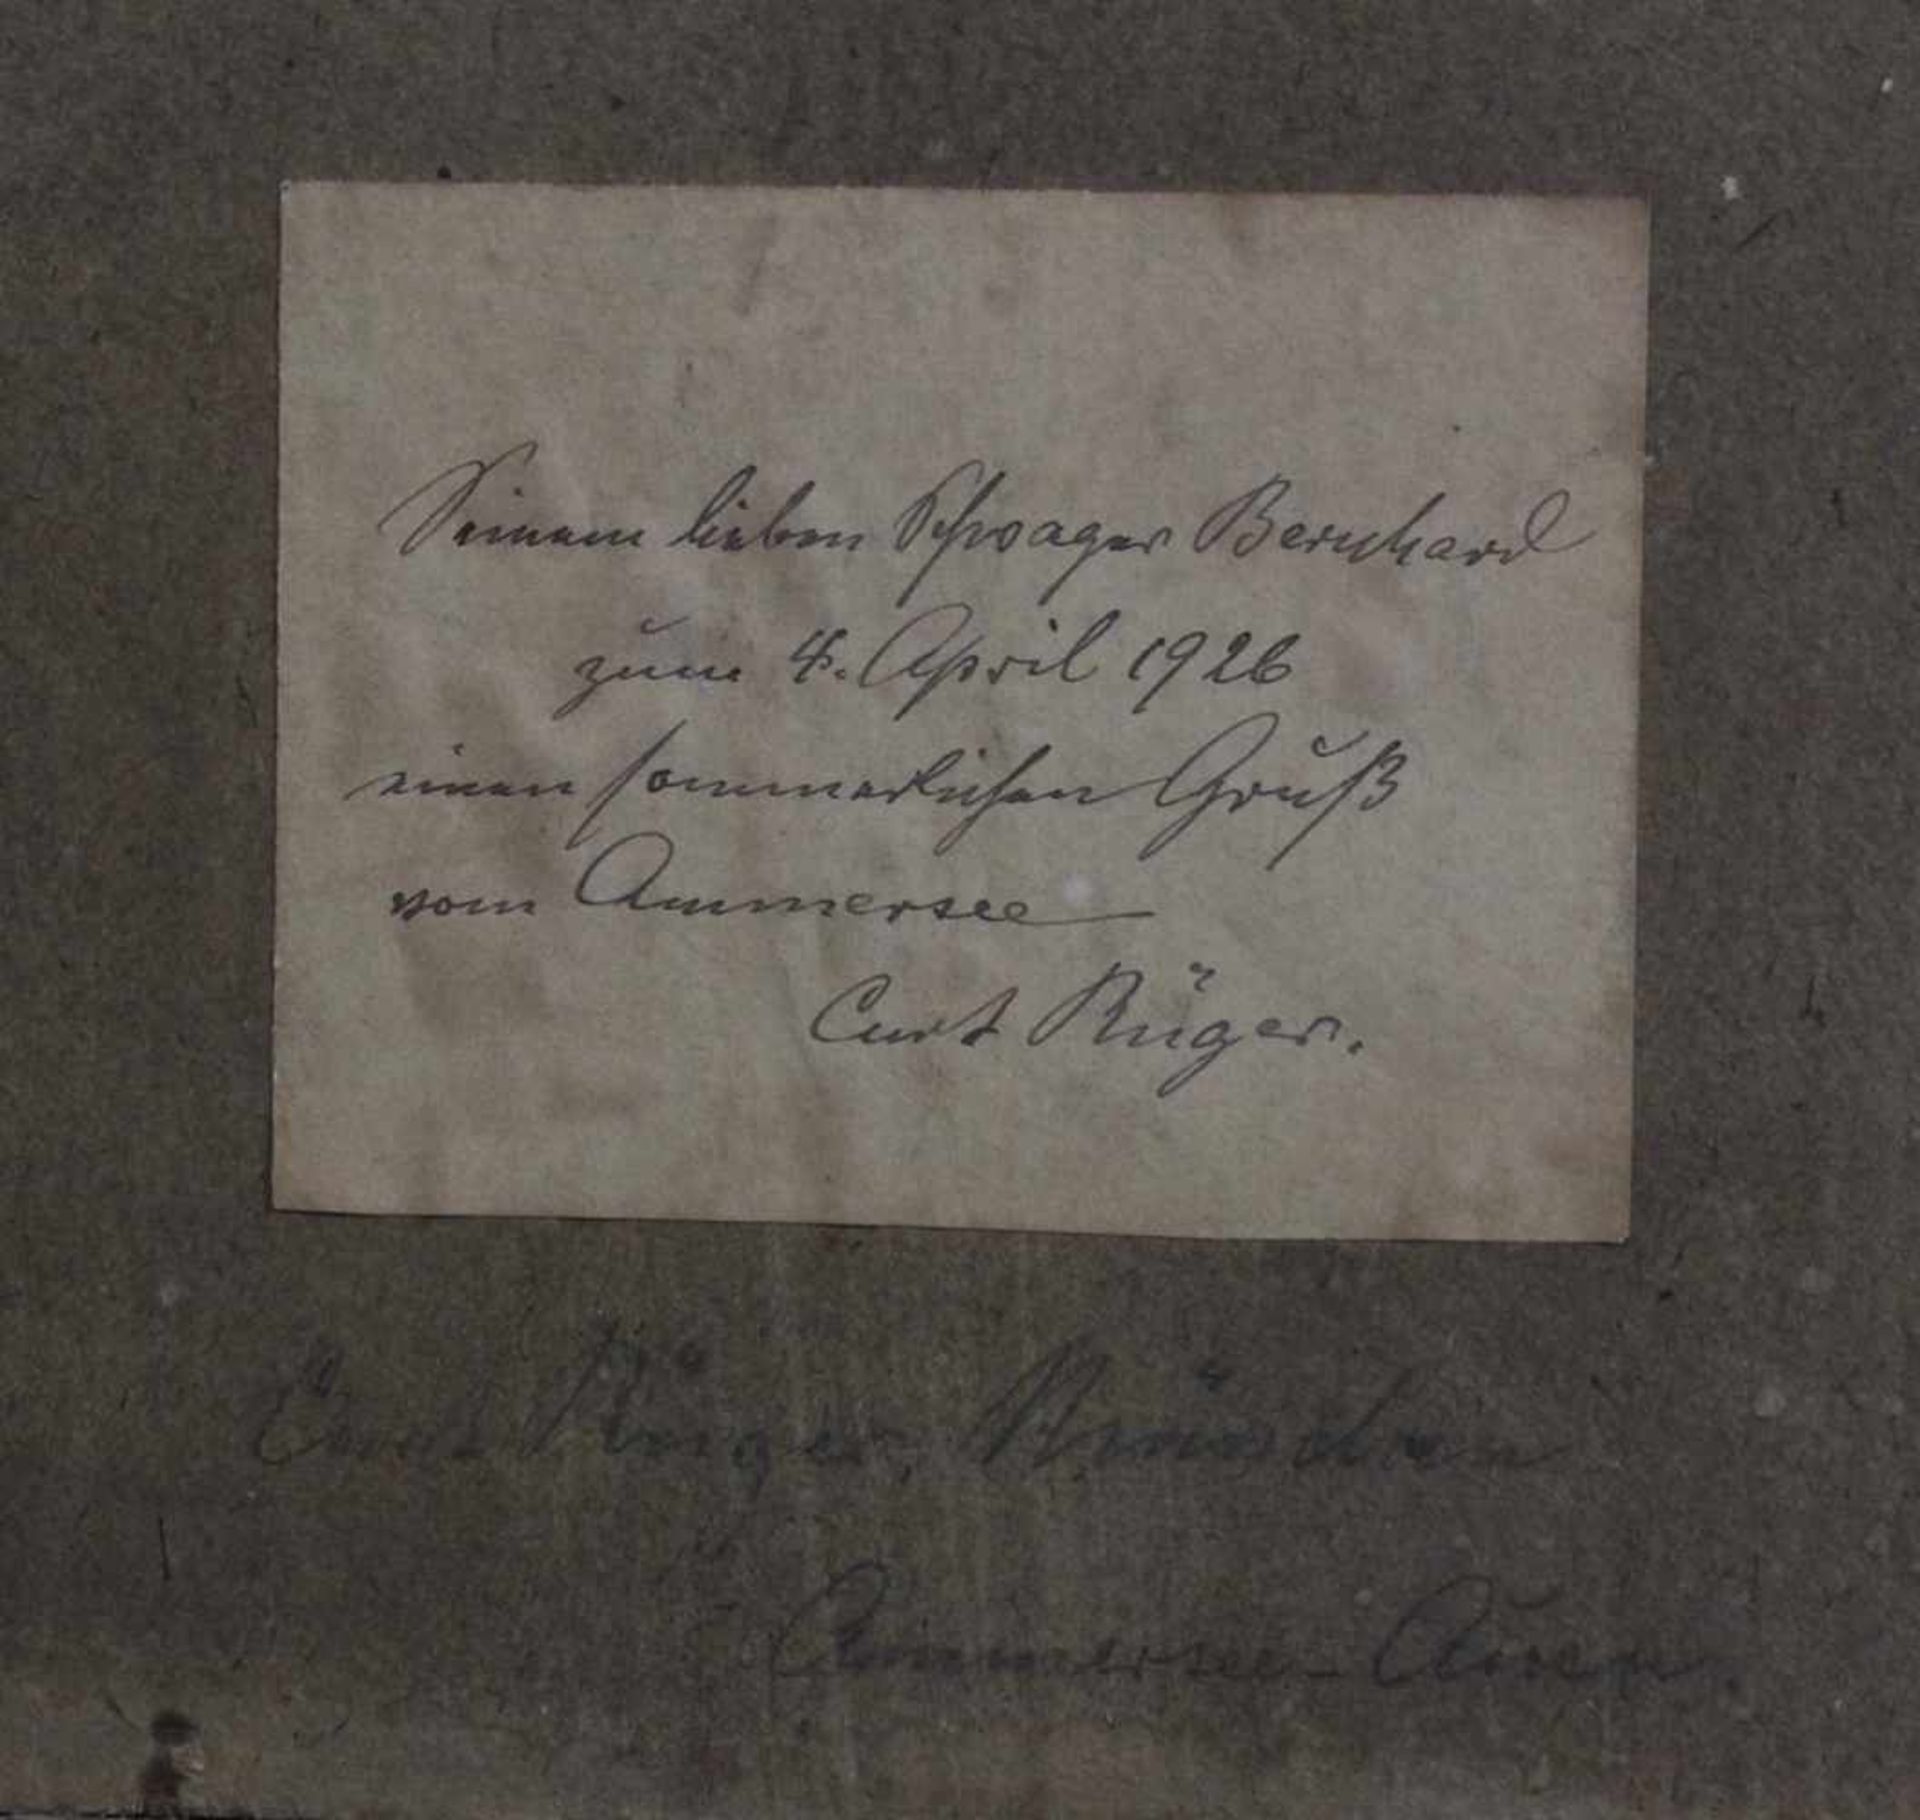 Seinem lieben Schwager Bernhard
zum 4. April 1926
einen sommerlichen Gruß
vom Ammersee
Curt Rüger.
Curt Rüger, München
Ammersee-Auen